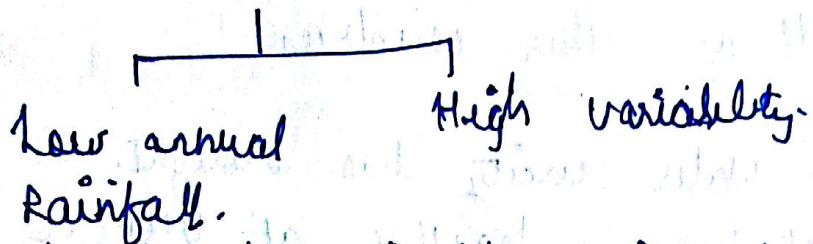 Low annual
Rainfall.
High variability.